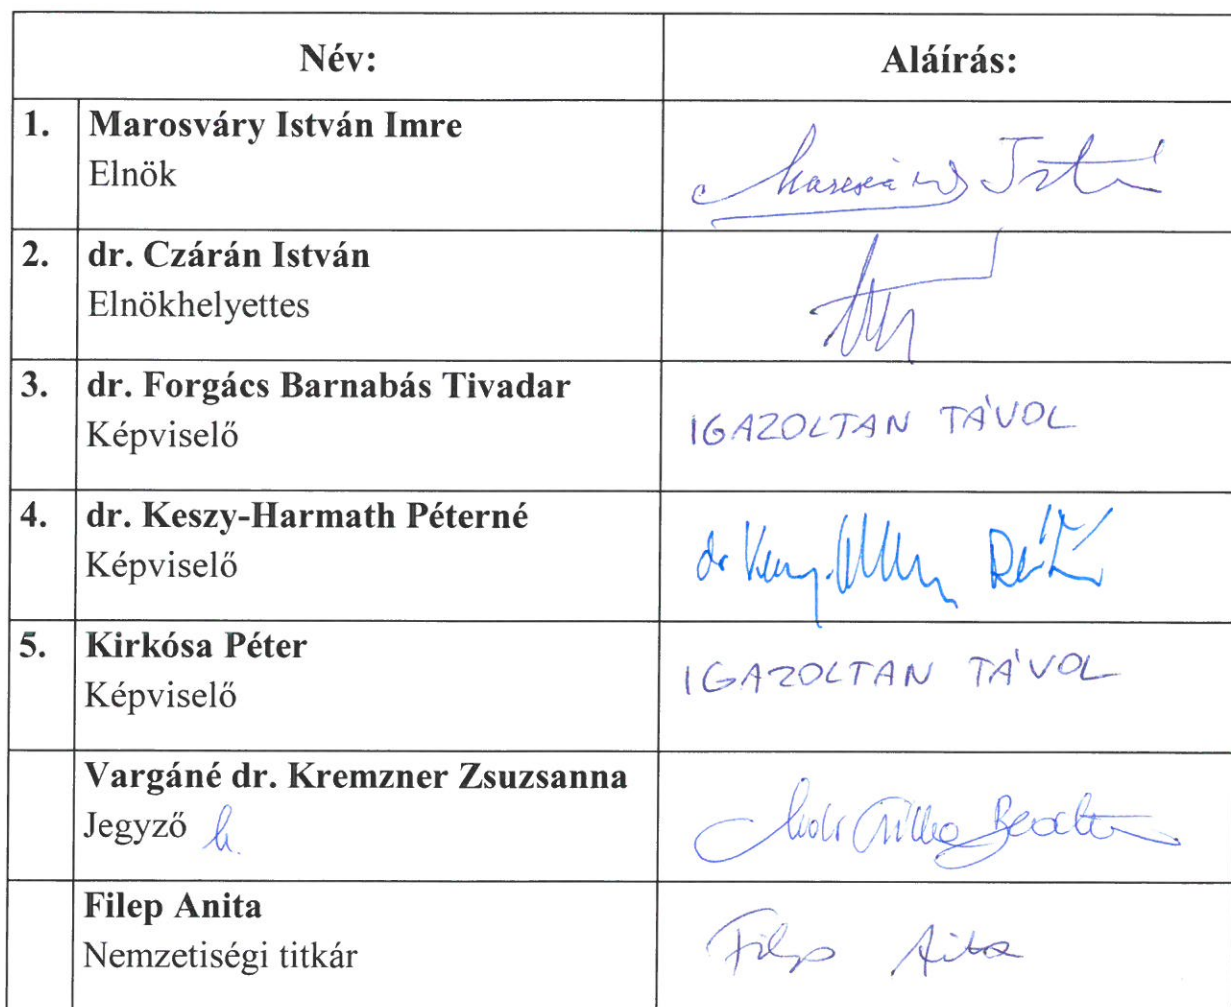 Név: Aláírás:
1. Marosváry István Imre
Elnök
2. dr. Czárán István
Elnökhelyettes
3. dr. Forgács Barnabás Tivadar
Képviselő IGAZOLTAN TÁVOL
4. dr. Keszy-Harmath Péterné
Képviselő
5. Kirkósa Péter
Képviselő IGAZOLTAN TÁVOL
Vargáné dr. Kremzner Zsuzsanna
Jegyző
Filep Anita
Nemzetiségi titkár Filep Anita